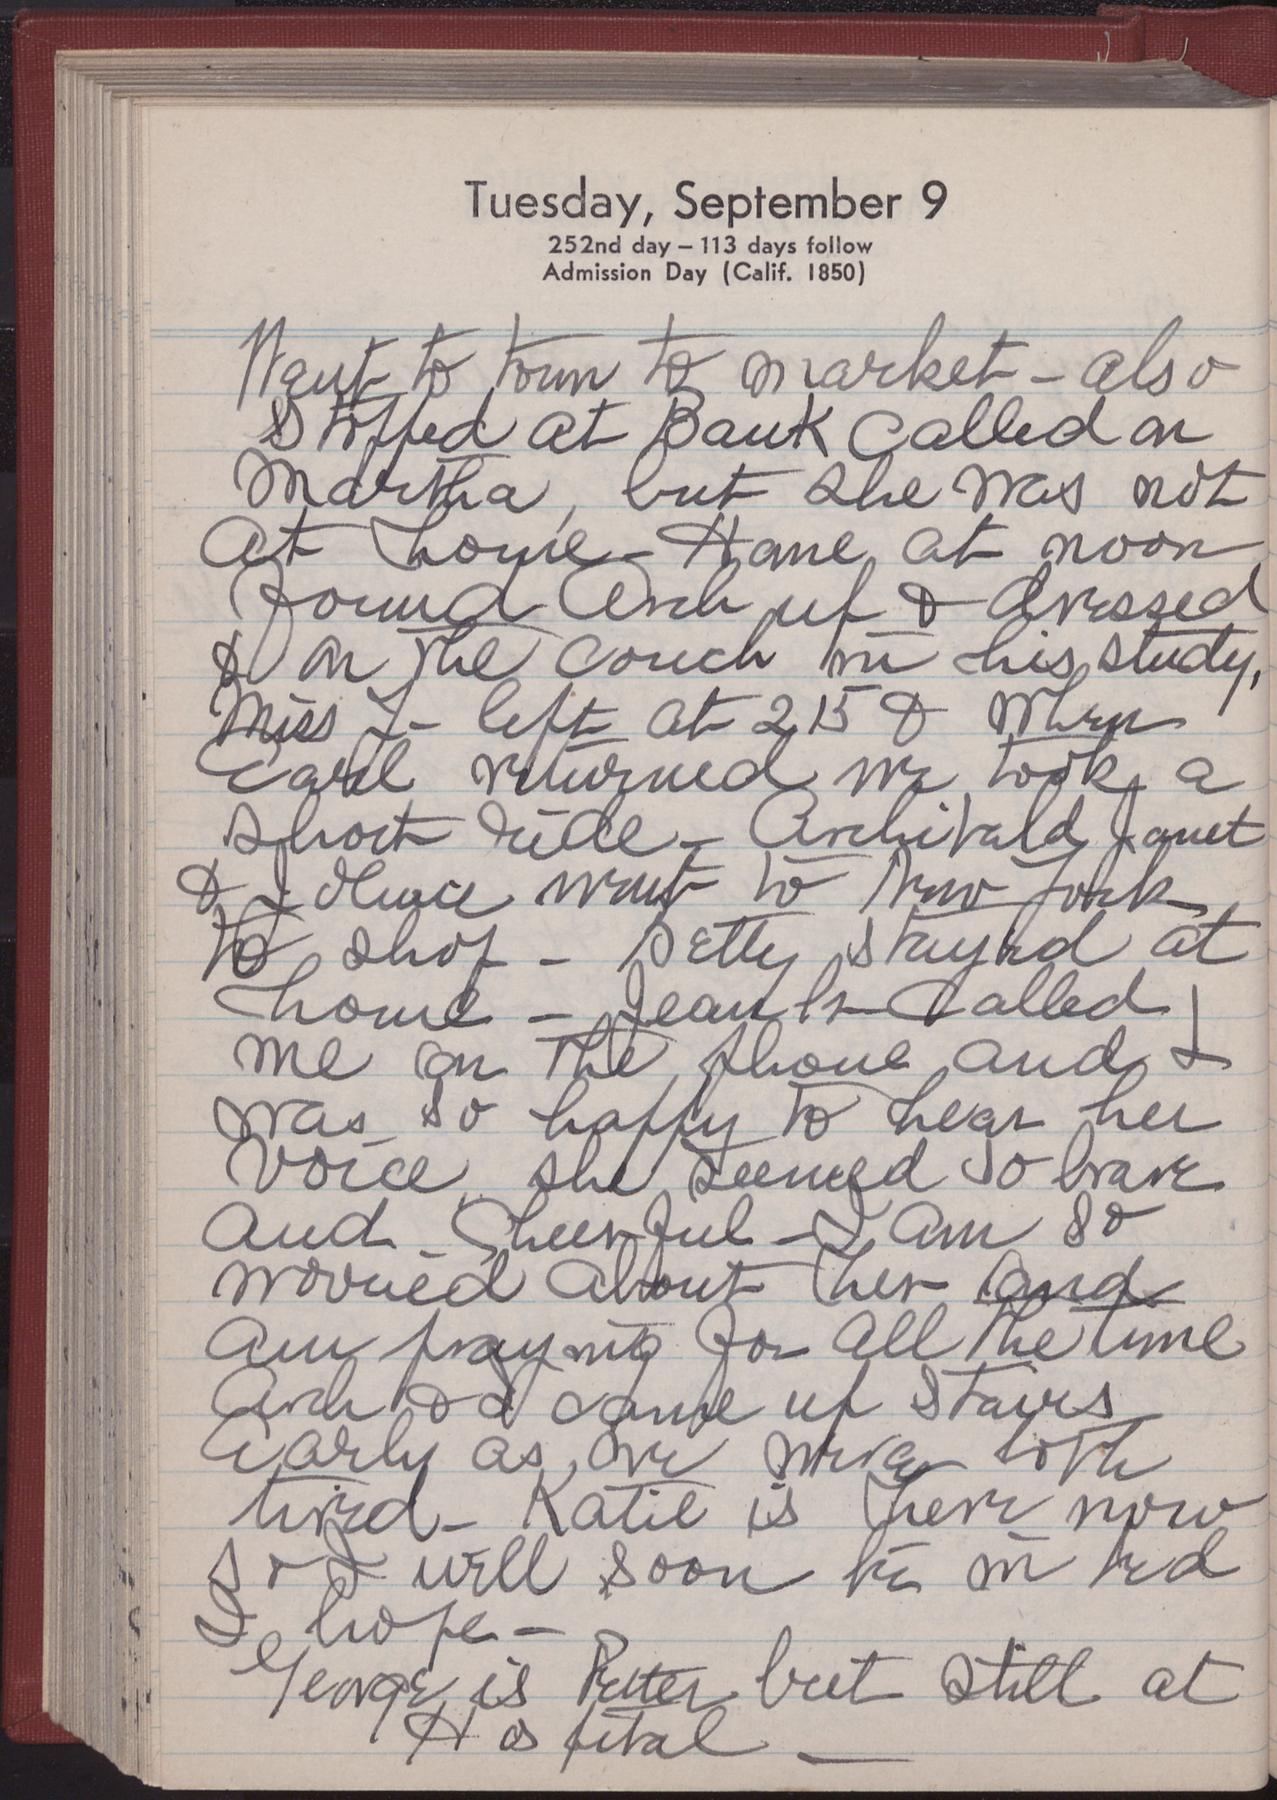 Tuesday, September 9
252nd day – 113 days follow
Admission Day (Calif. 1850)
Went to town to market – also
Stopped at Bank Called on
Martha, but she was not
at home – Home at noon
Found Arch up & dressed
& on the couch in his study,
Miss I – left at 2 15 & when
Carl returned we took a
short ride – Archibald Janet
& I went to New York
to shop – Betty stayed at
home – Jean Called
me on the phone and I
was so happy to hear her
Voice she seemed so brave
and Cheerful – I am so
worried about her and
am praying for all the time
Arch & I came up stairs
Early as we were both
tired – Katie is here now
so I will soon be in bed
I hope –
George is Better but still at
Hospital —